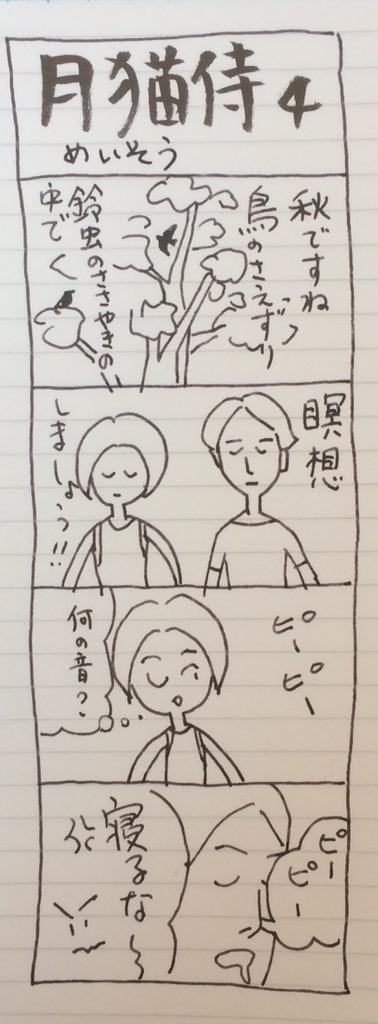 月猫侍 4
めいそう
秋ですね
鳥のさえずり
鈴虫のささやきの
中でく
瞑想
しましょう!!
ピーピー
何の音?
ピーピー
寝るな〜